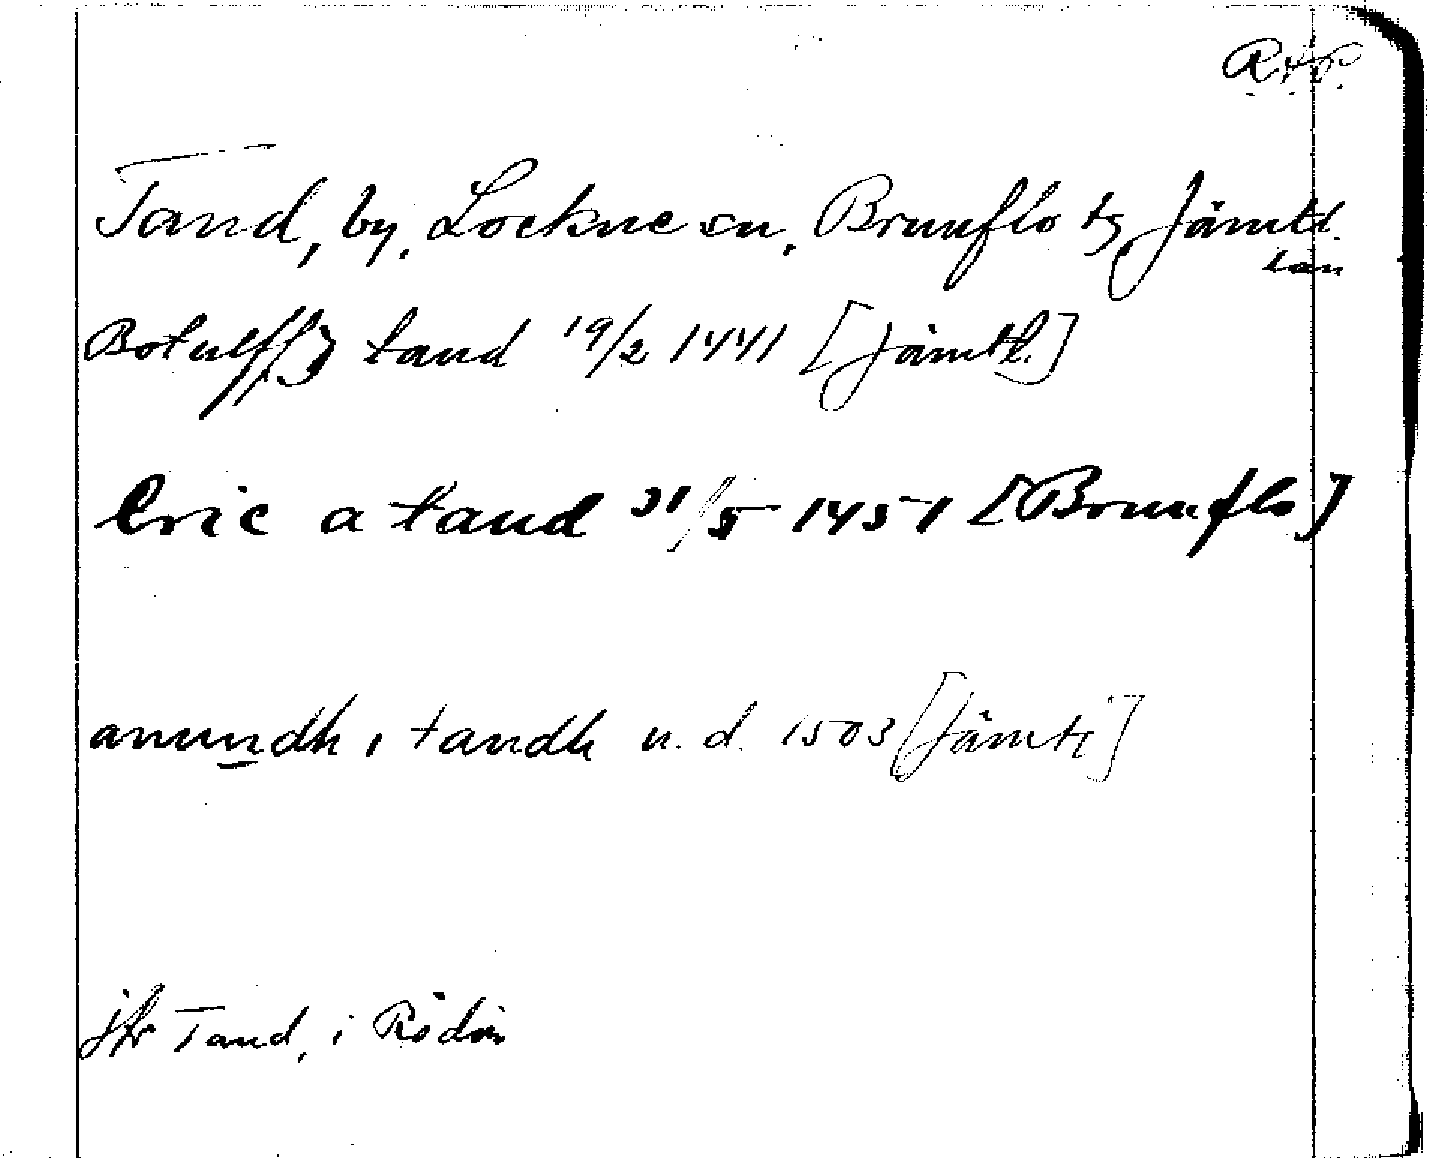 Tand, by, Lockne sn, Brunflo tg Jämtl.
län
Botulff tand 19/2 1441 [Jämtl.]
Eric a tand 31/5 1451 [Brunflo]
anundh i tandh u. d. 1503 [Jämtl]
jfr Tand, i Rödön